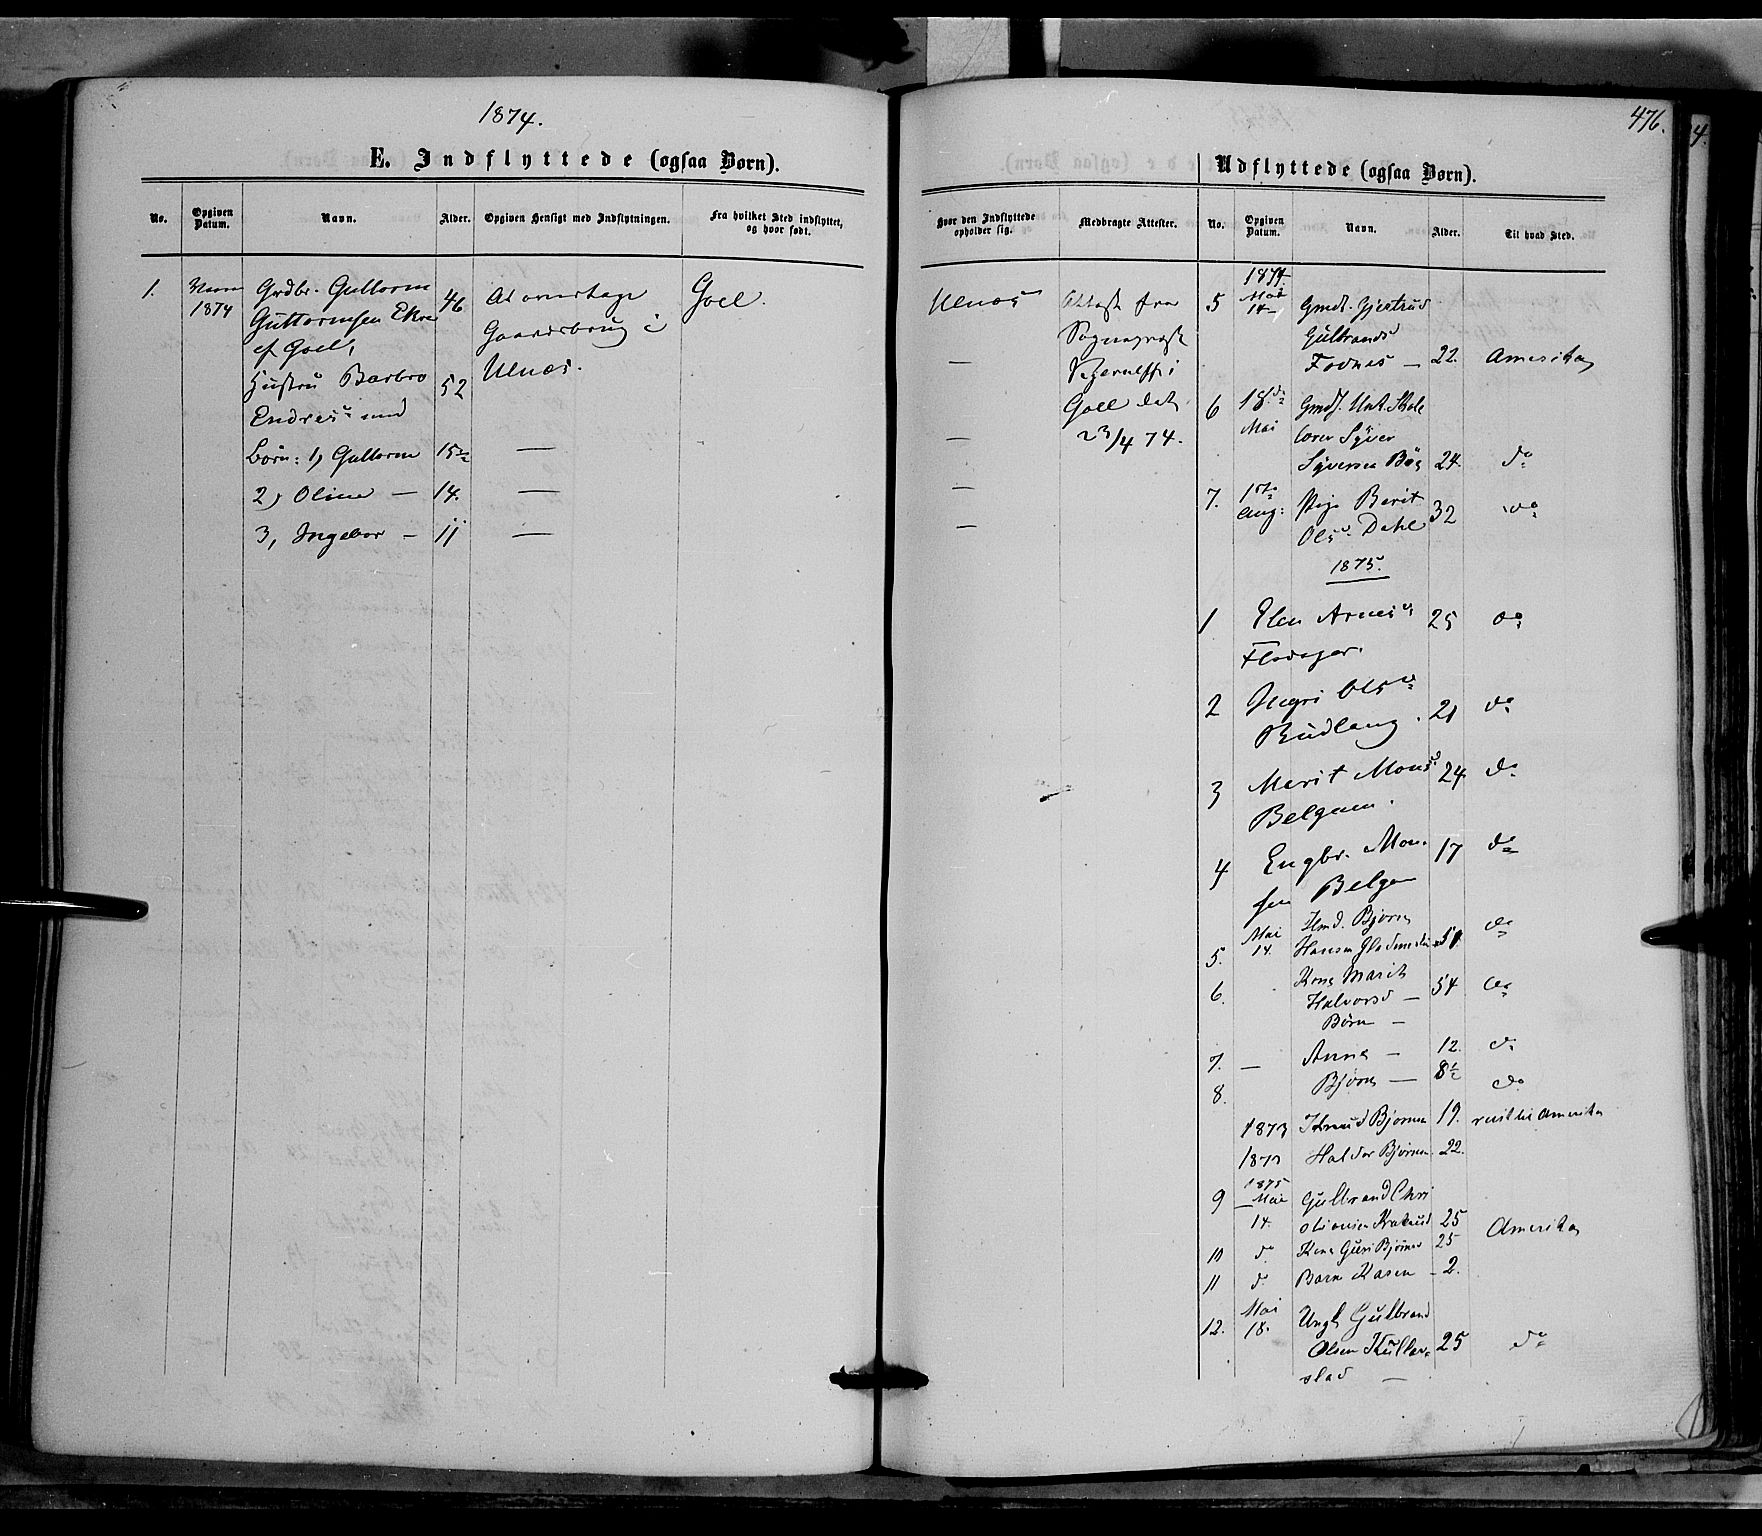 1874.
E. Indflyttede (ogsaa Børn).
No.
Opgiven Datum.
Navn.
Alder.
Opgiven Hensigt med Indflytningen.
Fra hvilket Sted indflyttet, og hvor født.
1.
1874
Grdbr. Guttorm
Guttormsen Ekre
af Goel,
46
At overtage
Gaardsbrug i
Ulnæs.
Goel.
Hustru Barbro
Endresd. med
52
Børn: 1, Guttorm 15½ —
2, Oline — 14. —
3, Ingebor — 11 —
476.
Udflyttede (ogsaa Børn).
Hvor den Indflyttede opholder sig.
Medbragte Attester.
No.
Opgiven Datum.
Navn.
Alder.
Til hvad Sted.
Ulnæs
—
—
—
—
Attest fra
Sognepræst
i
Goel dat.
23/4 74.
1874.
5 Mai 14 Gmdt. Gjertrud
Gulbrandsd
Fodnes — 22. Amerika
6 18de Mai Gmdt. Unk. Skole
lærer Syver
Syversen Bøe 24. do
7. 1ste Aug: Pige Berit
Olsd. Dahl 32 do
1875.
1 Elen Arnesd. 25 do
Flodager.
2 Ingri Olsd.
Rudlang. 21 do
3 Marit Monsd 24. do
Belgum.
4 Engbr. Mon- 17 do
sen Belgum
5. Mai 14. Hmd. Bjørn
Hansen 51. do
6. Kone Marit
Halvorsd — 54 do
Børn —
7. — Anne — 12. do
8. Bjørn — 8½ do
1873 Knud Bjørnsen 19. reist til Amerika
1873 Haldor Bjørnsen 22.
9 1875 Mai 14. Gulbrand Chri
stiansen 25 Amerika
10 do Kone Guri Bjørnsd 25
11 do Barn Karen — 2.
12. Mai 18. Ungk. Gulbrand
Olsen Kuller- 25 do
stad —